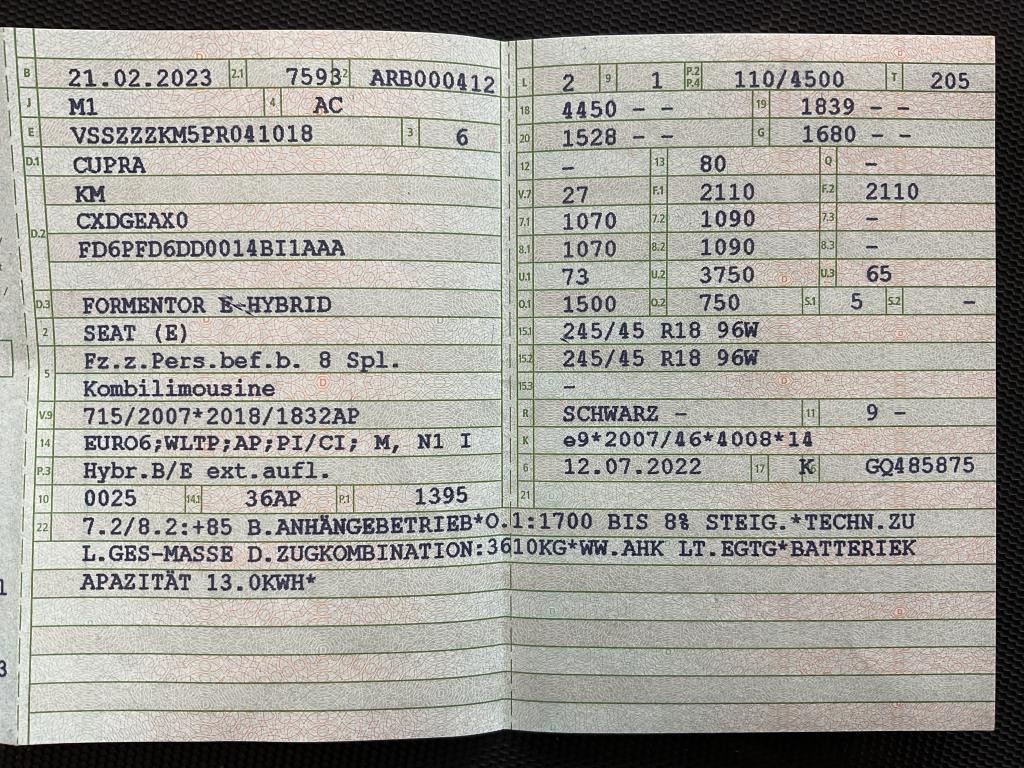 B 21.02.2023 2.1 7593 2.2 ARB000412
J M1 4 AC
E VSSZZZKM5PR041018 3 6
D.1 CUPRA
D.2 KM
CXDGEAX0
FD6PFD6DD0014BI1AAA
D.3 FORMENTOR E-HYBRID
2 SEAT (E)
5 Fz.z.Pers.bef.b. 8 Spl.
Kombilimousine
V.9 715/2007*2018/1832AP
14 EURO6;WLTP;AP;PI/CI; M, N1 I
P.3 Hybr.B/E ext.aufl.
10 0025 14.1 36AP P.1 1395
L 2 9 1 P.2 P.4 110/4500 T 205
18 4450 – – 19 1839 – –
20 1528 – – G 1680 – –
12 – 13 80 Q –
V.7 27 F.1 2110 F.2 2110
7.1 1070 7.2 1090 7.3 –
8.1 1070 8.2 1090 8.3 –
U.1 73 U.2 3750 U.3 65
O.1 1500 O.2 750 S.1 5 S.2 –
15.1 245/45 R18 96W
15.2 245/45 R18 96W
15.3 –
R SCHWARZ – 11 9 –
K e9*2007/46*4008*14
6 12.07.2022 17 K 16 GQ485875
21
22 7.2/8.2:+85 B.ANHÄNGEBETRIEB*O.1:1700 BIS 8% STEIG.*TECHN.ZU
L.GES-MASSE D.ZUGKOMBINATION:3610KG*WW.AHK LT.EGTG*BATTERIEK
APAZITÄT 13.0KWH*